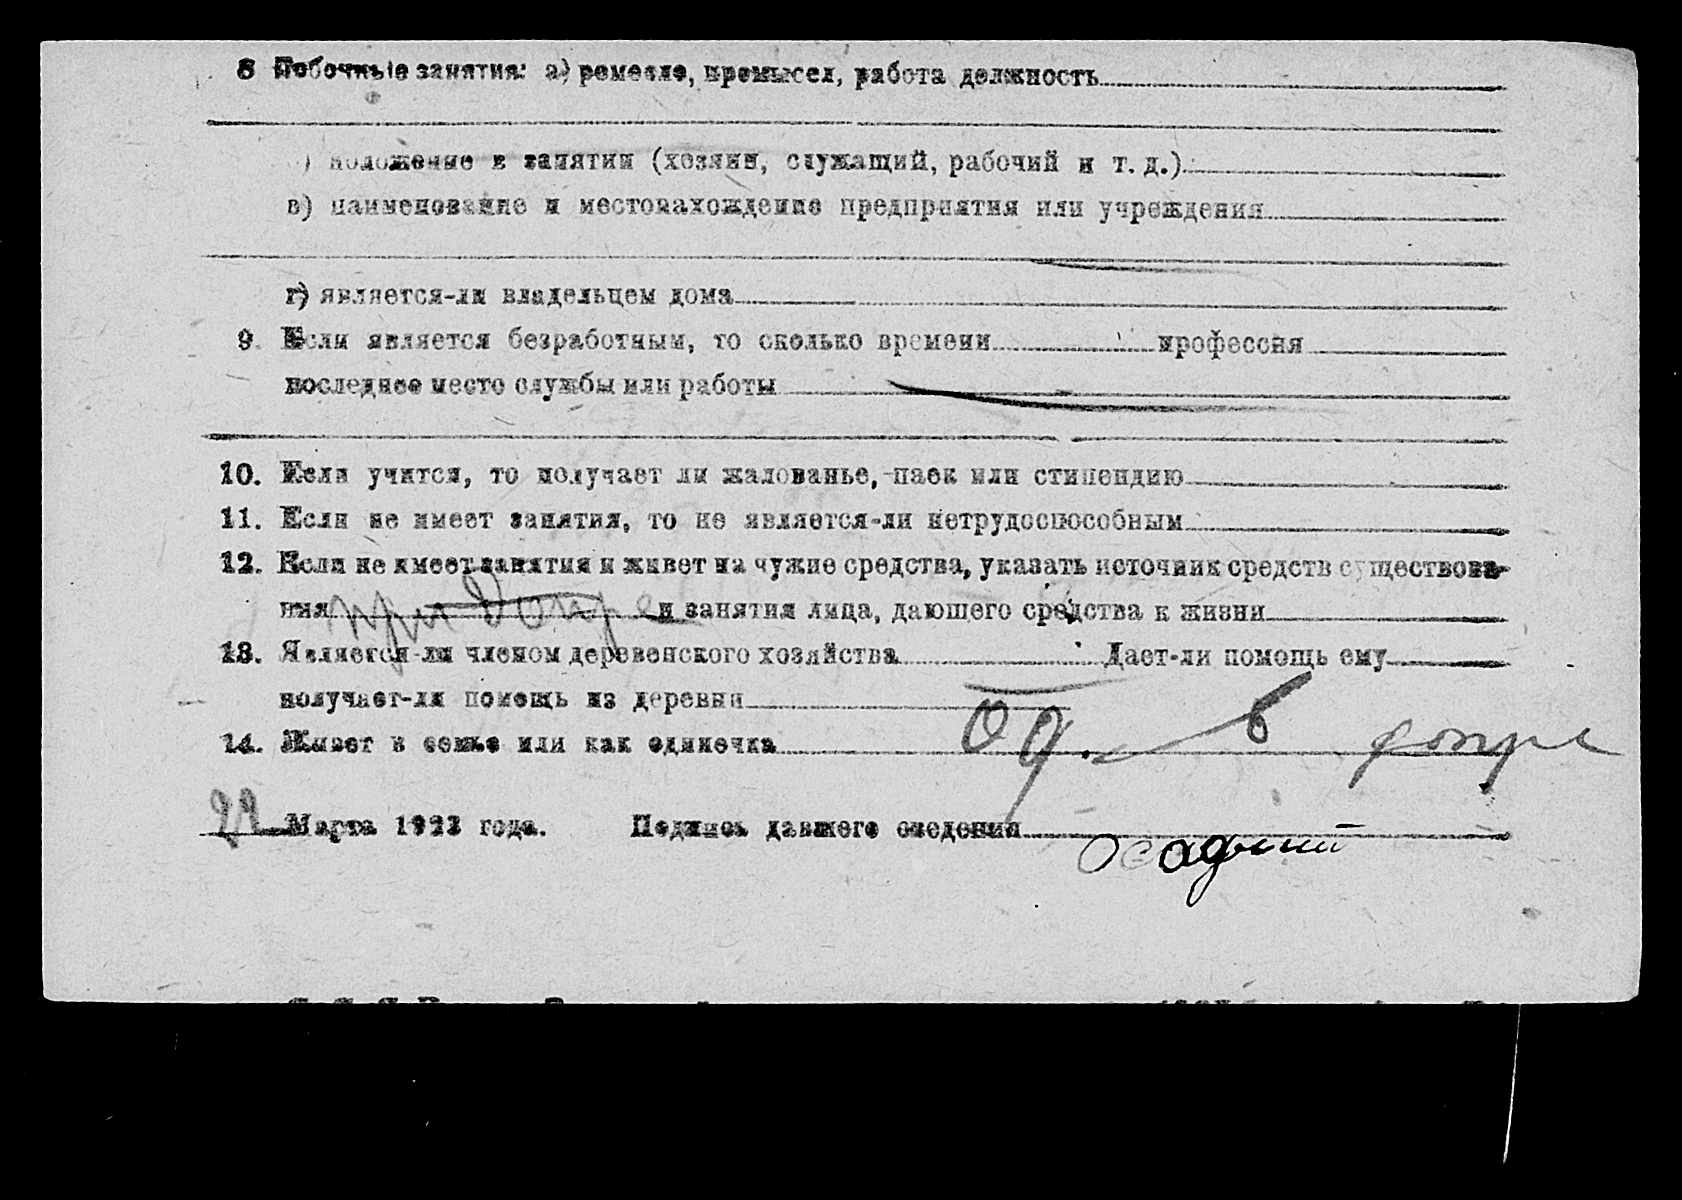 8 Побочные занятия: а) ремесло, промысел, работа должность
) положение в занятии (хозяин, служащий, рабочий и т. д.)
в) наименование и местонахождение предприятия или учреждения
г) является-ли владельцем дома
9. Если является безработным, то сколько времени профессия
последнее место службы или работы
10. Если учится, то получает ли жалованье, паек или стипендию
11. Если не имеет занятия, то не является-ли нетрудоспособным
12. Если не имеет занятия и живет на чужие средства, указать источник средств существова-
ния при Допре и занятия лица, дающего средства к жизни
13. Является-ли членом деревенского хозяйства Дает-ли помощь ему
получает-ли помощь из деревни
14. Живет в семье или как одиночка од. в допре
Марта 1923 года. Подпись давшего сведения